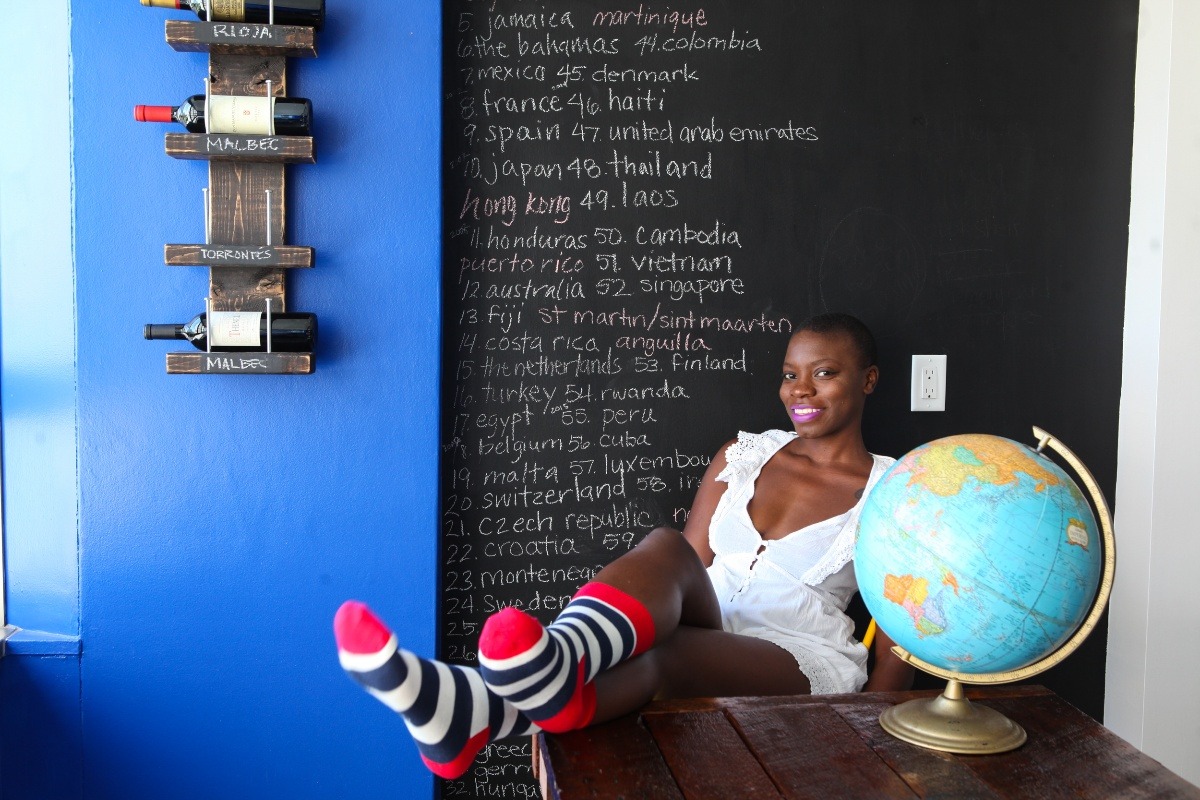 RIOJA
MALBEC
TORRONTÉS
MALBEC
5. jamaica martinique
6. the bahamas 44. colombia
7. mexico 45. denmark
8. france 46. haiti
9. spain 47. united arab emirates
10. japan 48. thailand
hong kong 49. laos
11. honduras 50. cambodia
puerto rico 51. vietnam
12. australia 52. singapore
13. fiji st martin/sint maarten
14. costa rica anguilla
15. the netherlands 53. finland
16. turkey 54. rwanda
17. egypt 2015 55. peru
18. belgium 56. cuba
19. malta 57. luxembou
20. switzerland 58.
21. czech republic
22. croatia 59.
23. monteneg
24. Sweden
25.
26
greec
germ
32. hunga